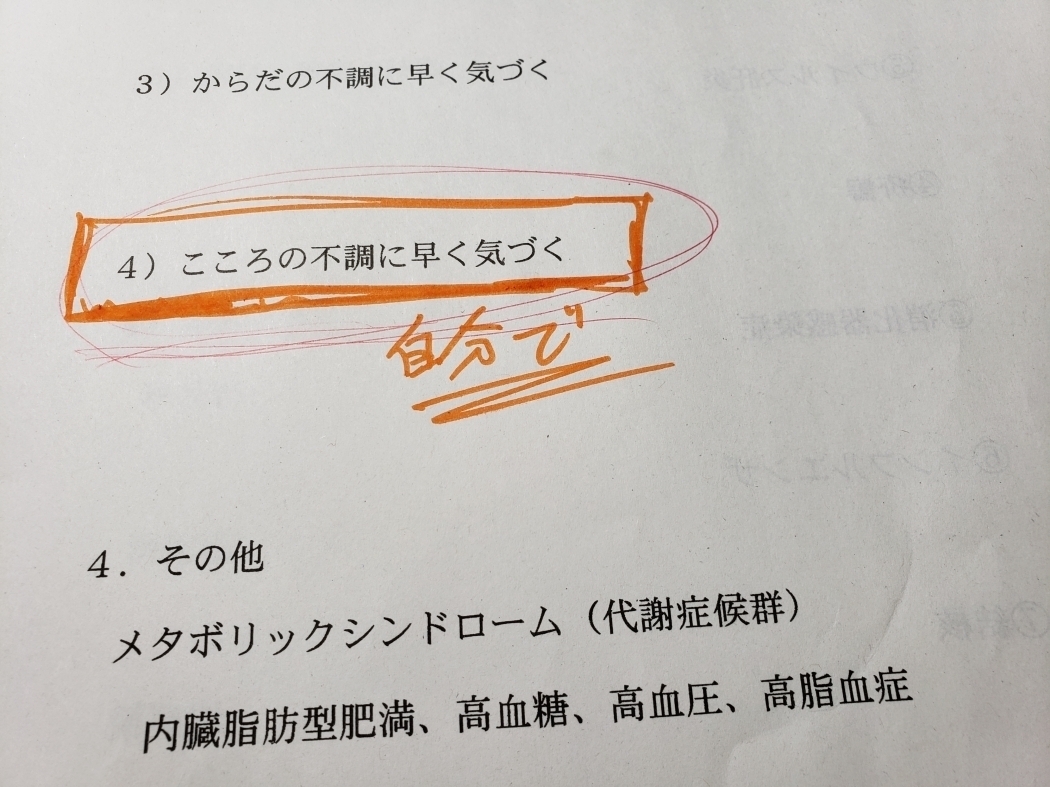 3）からだの不調に早く気づく
4）こころの不調に早く気づく
自分で
4．その他
メタボリックシンドローム（代謝症候群）
内臓脂肪型肥満、高血糖、高血圧、高脂血症